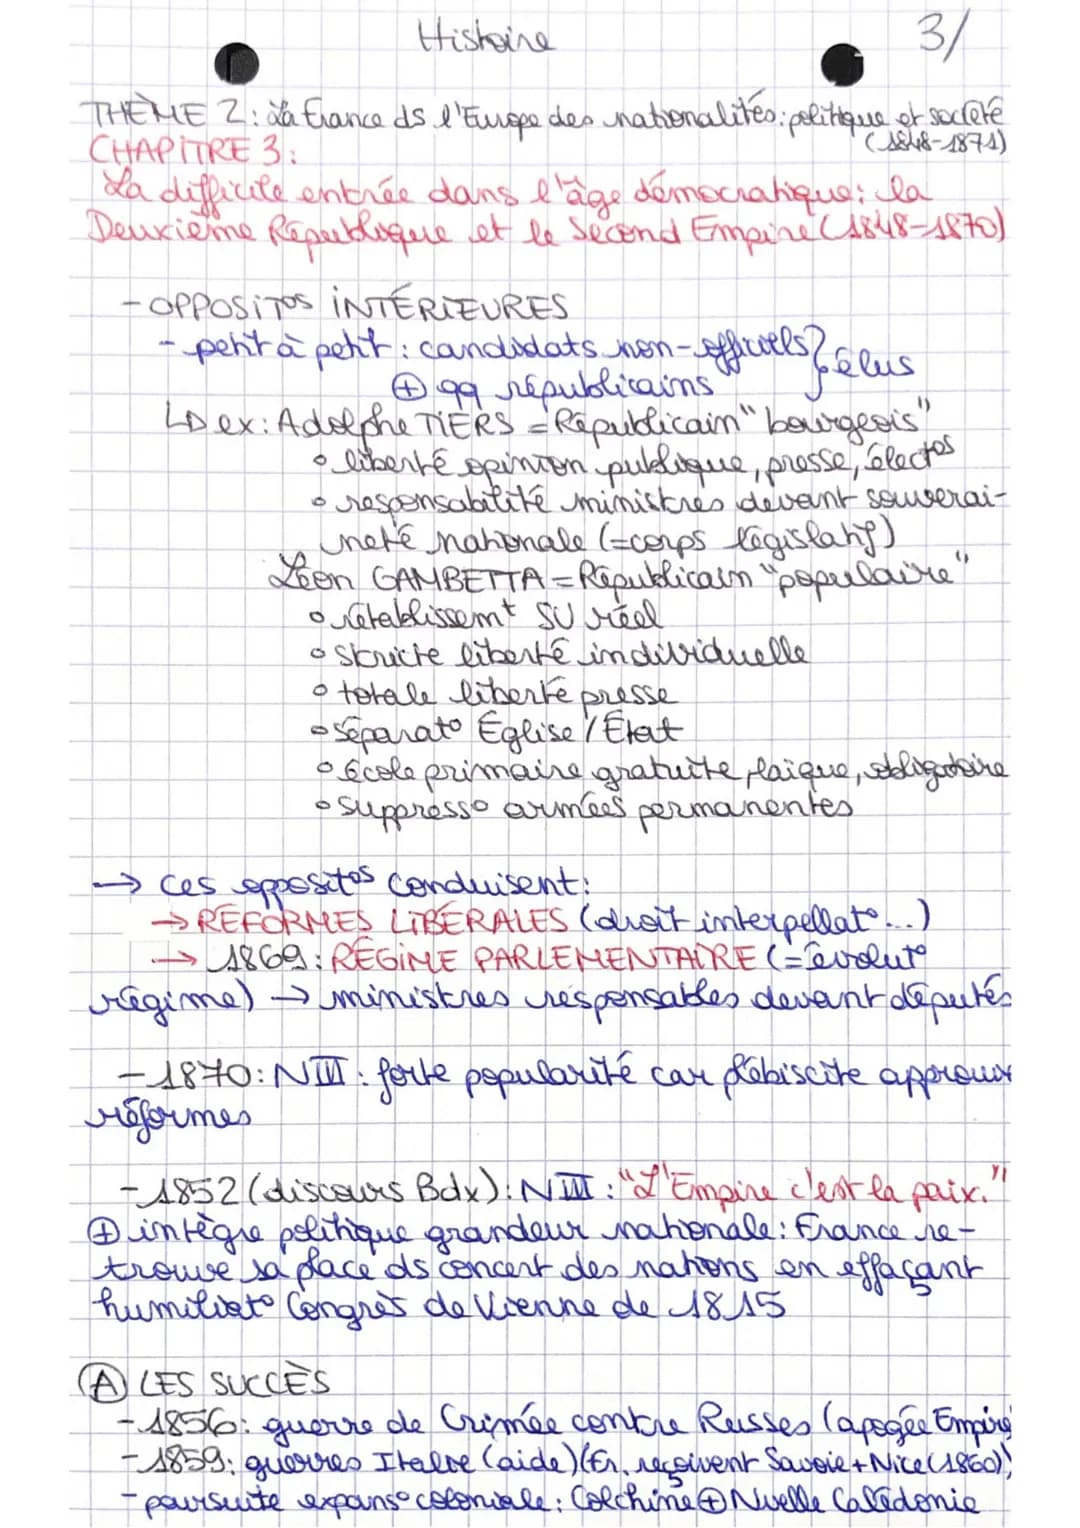 Histoire 3/
THÈME 2: La France ds l'Europe des nationalités: politique et société
(1848-1871)
CHAPITRE 3:
La difficile entrée dans l'âge démocratique: la
Deuxième République et le Second Empire (1848-1870)
- OPPOSIT°S INTÉRIEURES
- petit à petit: candidats non-officiels } élus
⊕ qq républicains
↳ ex: Adolphe TIERS = Républicain "bourgeois"
° liberté opinion publique, presse, élect°s
° responsabilité ministres devant souverai-
neté nationale (=corps législatif)
Léon GAMBETTA = Républicain "populaire"
° rétablissemt SU réel
° stricte liberté individuelle
° totale liberté presse
° séparat° Église/État
° école primaire gratuite, laïque, obligatoire
° suppress° armées permanentes
→ Ces opposit°s conduisent:
→ RÉFORMES LIBÉRALES (droit interpellat°...)
→ 1869: RÉGIME PARLEMENTAIRE (= évolut°
régime) → ministres responsables devant députés
- 1870: NIII: forte popularité car plébiscite approuve
réformes
- 1852 (discours Bdx): NIII: "L'Empire c'est la paix."
⊕ intègre politique grandeur nationale: France re-
trouve sa place ds concert des nations en effaçant
humiliat° Congrès de Vienne de 1815
Ⓐ LES SUCCÈS
- 1856: guerre de Crimée contre Russes (apogée Empire)
- 1859: guerres Italie (aide) (Fr. reçoivent Savoie + Nice (1860))
- poursuite expans° coloniale: Cochine ⊕ Nvelle Calédonie